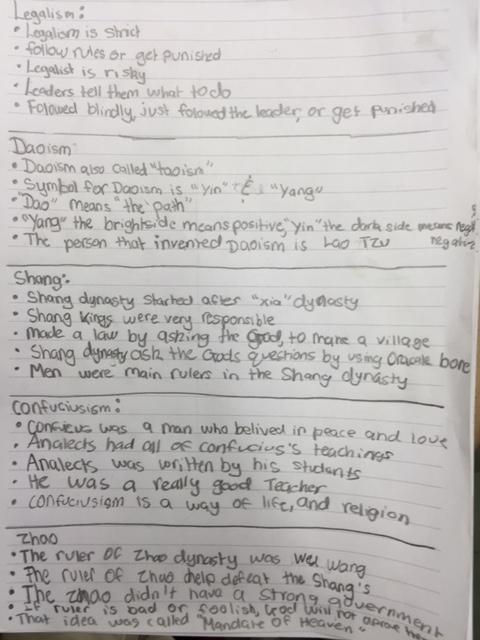 Legalism:
• Legalism is strict
• follow rules or get punished
• Legalist is risky
• Leaders tell them what to do
• Folowed blindly, just folowed the leader, or get punished
Daoism:
• Daoism also called "taoism"
• Symbol for Daoism is "Yin" & "Yang"
• "Dao" means "the path"
• "Yang" the brightside means positive, "yin" the dark side means
negative.
• The person that invented Daoism is Lao Tzu
Shang:
• Shang dynasty started after "xia" dynasty
• Shang kings were very responsible
• made a law by asking the God, to make a village
• Shang dynasty ask the Gods questions by using Oracale bone
• Men were main rulers in the Shang dynasty
Confuciusism:
• Conficus was a man who belived in peace and love
• Analects had all of confucius's teachings
• Analects was written by his students
• He was a really good Teacher
• Confuciusism is a way of life, and religion
Zhao
• The ruler of Zhao dynasty was Wu Wang
• The ruler of Zhao help defeat the Shang's
• The Zhao didn't have a strong government
• If ruler is bad or foolish, God will not aprove
• That idea was called "Mandate of Heaven"